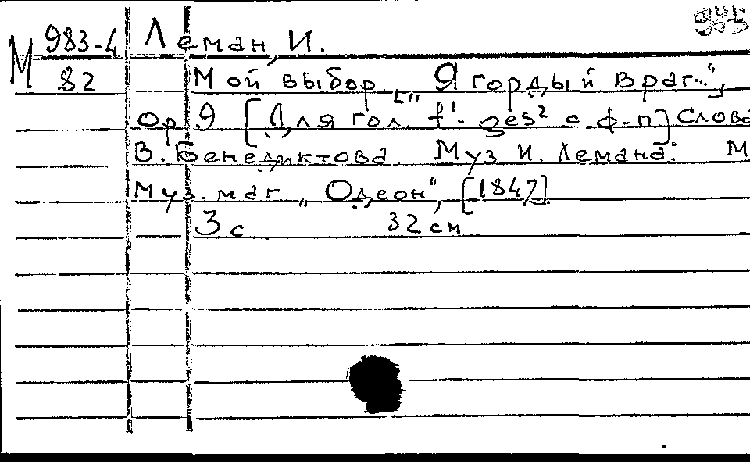 М 983-4 Леман, И.
82 Мой выбор ["Я гордый враг..",
ор 9 [Для гол. f¹- ges² с ф-п] Слова
В. Бенедиктова. Муз И. Лемана. М
Муз. маг. „Одеон", [1847]
3 с 32 см